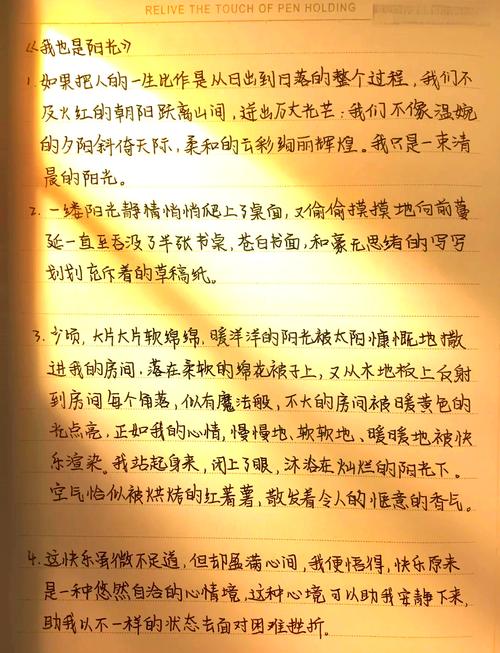 RELIVE THE TOUCH OF PEN HOLDING
《我也是阳光》
1. 如果把人的一生比作是从日出到日落的整个过程，我们不
及火红的朝阳跃离山间，迸出万丈光芒；我们不像温婉
的夕阳斜倚天际，柔和的云彩绚丽辉煌。我只是一束清
晨的阳光。
2. 一缕阳光静情悄悄爬上了桌面，又偷偷摸摸地向前蔓
延一直至吞没了半张书桌，苍白书面，和豪无思绪的写写
划划充斥着的草稿纸。
3. 少顷，大片大片软绵绵，暖洋洋的阳光被太阳慷慨地撒
进我的房间，落在柔软的绵花被子上，又从木地板上反射
到房间每个角落，似有魔法般，不大的房间被暖黄色的
光点亮，正如我的心情，慢慢地、软软地、暖暖地被快
乐渲染。我站起身来，闭上了眼，沐浴在灿烂的阳光下。
空气恰似被烘烤的红薯薯，散发着令人的惬意的香气。
4. 这快乐虽微不足道，但却盈满心间，我便悟得，快乐原来
是一种悠然自洽的心情境，这种心境可以助我安静下来，
助我以不一样的状态去面对困难挫折。